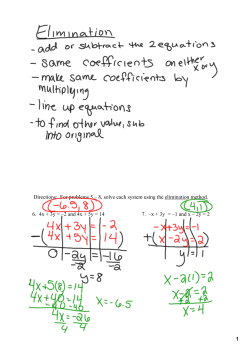 Elimination
- add or subtract the 2 equations
- same coefficients on either x or y
- make same coefficients by
multiplying
- line up equations
- to find other value, sub
into original
Directions: For problems 5 – 8, solve each system using the elimination method.
(-6.5, 8)
(4, 1)
6. 4x + 3y = -2 and 4x + 5y = 14
7. -x + 3y = -1 and x – 2y = 2
4x + 3y = -2
-(4x + 5y = 14)
0 -2y = -16
-2 -2
y = 8
4x + 5(8) = 14
4x + 40 = 14
-40 -40
4x = -26
4 4
x = -6.5
-x + 3y = -1
+(x - 2y = 2)
y = 1
x - 2(1) = 2
x - 2 = 2
+2 +2
x = 4
1